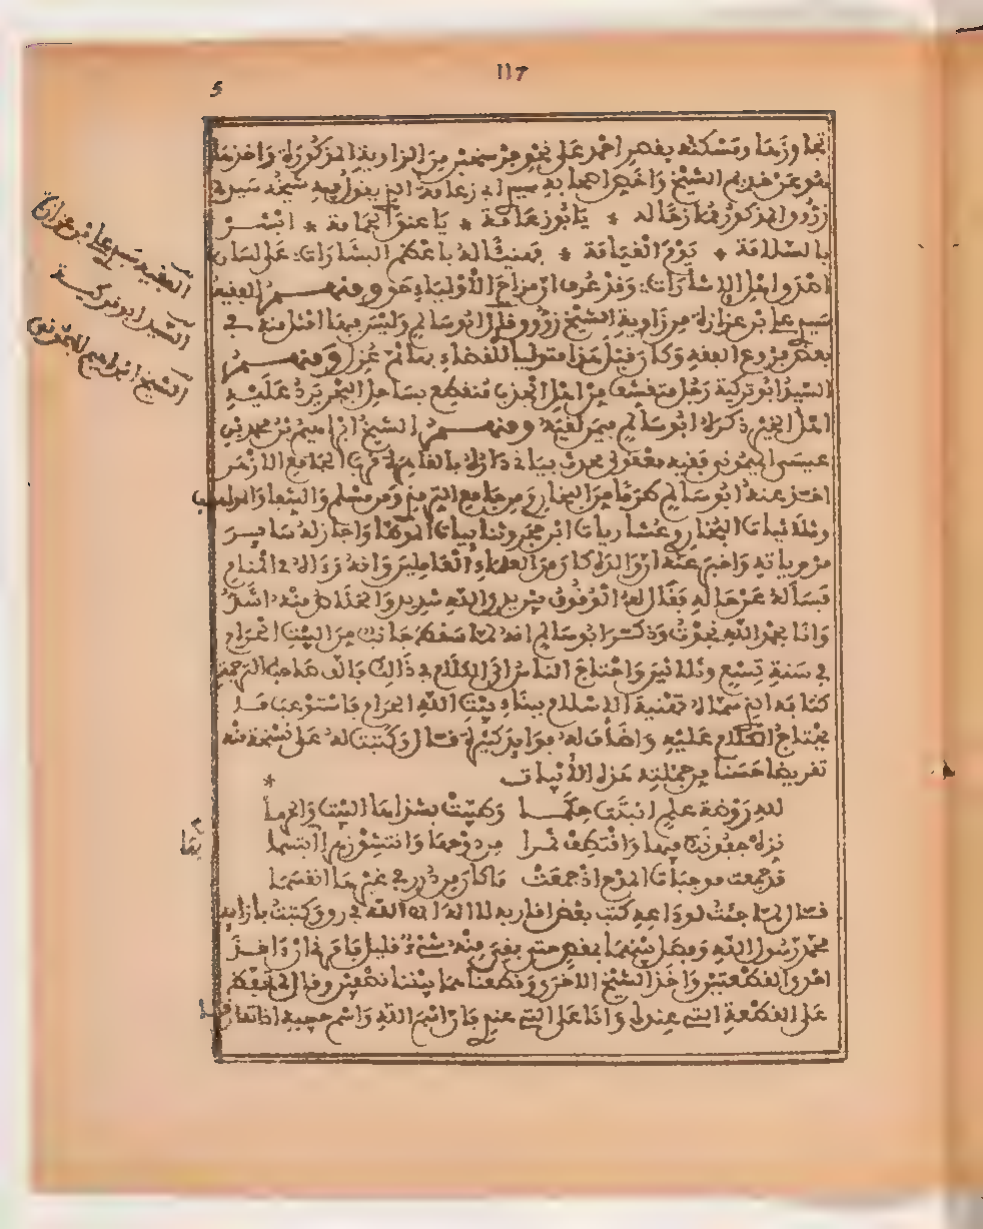 117
5
تجاوزها ومسكنه بقصر احمد على نحو من ميلين من الزاوية المذكورة واخذ
هو عن خديم الشيخ سيدي ابي زعامة الذي يقول فيه شيخه سيدي
زروق المذكور فيما زعماله * يا بوزعامة * يا عنوان الحمامة * ابشر
بالسلامة * يوم القيامة * فهنيئا له باعظم البشارات على لسان
اهل الاشارات وقد عرف ان مزاح الاولياء حق ومنهم الفقيه
سيدي علي بن عزازة من زاوية الشيخ زروق قال ابو سالم وليس بها امثل منه في
بعض فروع الفقه وكان قبل هذا متوليا للقضاء بها ثم عزل ومنهم
السيد ابو تركية رجل متقشف من اهل الجذب منقطع بساحل البحر يرد عليه
اهل الخير ذكره ابو سالم فيمن لقيه ومنهم الشيخ ابراهيم بن محمد بن
عيسى الميموني فقيه معقولي محدث بياني داره بالقاهرة قرب الجامع الازهر
اخذ عنه ابو سالم طرفا من البخاري ومن جامع الترمذي ومن مسلم والشفا والمواهب
وثلاثيات البخاري وعشاريات ابن حجر وثنائيات الموطا واجاز له سائر
مروياته واخبر عنه ان والده كان من العلماء العاملين وانه رءاه في المنام
فسأله عن حاله فقال له الوقوف بين يدي الله شديد والخلاص منه اشد
وانا بحمد الله نجوت وذكر ابو سالم انه لما سقط جانب من البيت الحرام
في سنة تسع وثلاثين واحتاج الناس الى الكلام في ذلك فالف صاحب الترجمة
كتابه الذي سماه تهنية الاسلام ببناء بيت الله الحرام فاستوعب ما
يحتاج الكلام عليه واضاف له فوايد كثيرة قال وكتبت له على نسخة منه
تقريظا حسنا من جملته هذه الابيات
*
لله روضة علم انبتت حكما وطيبت بشذاها البيت والحرما
نزه جفونك فيها واقتطف ثمرا من دوحها وانتشق زهرا ابتسما
قد جمعت موجبات المدح اذ جمعت ما كان من درر في نحرها انقسما
قال لما جئت لوداعه كتب بعض اقاربه لا اله الا الله في ورق وكتب بازايه
محمد رسول الله وفصل بينهما بقص حتى بقي منه شيء قليل فامرني ان آخذ
احدى القطعتين واخذ الشيخ الاخرى وقطعناها بيننا نصفين وقال لي احتفظ
على القطعة التي عندك وانا على التي عندي فان اسم الله واسم حبيبه اذا تفارقا
الفقيه سيدي علي بن عزازة
السيد ابو تركية
الشيخ ابراهيم الميموني